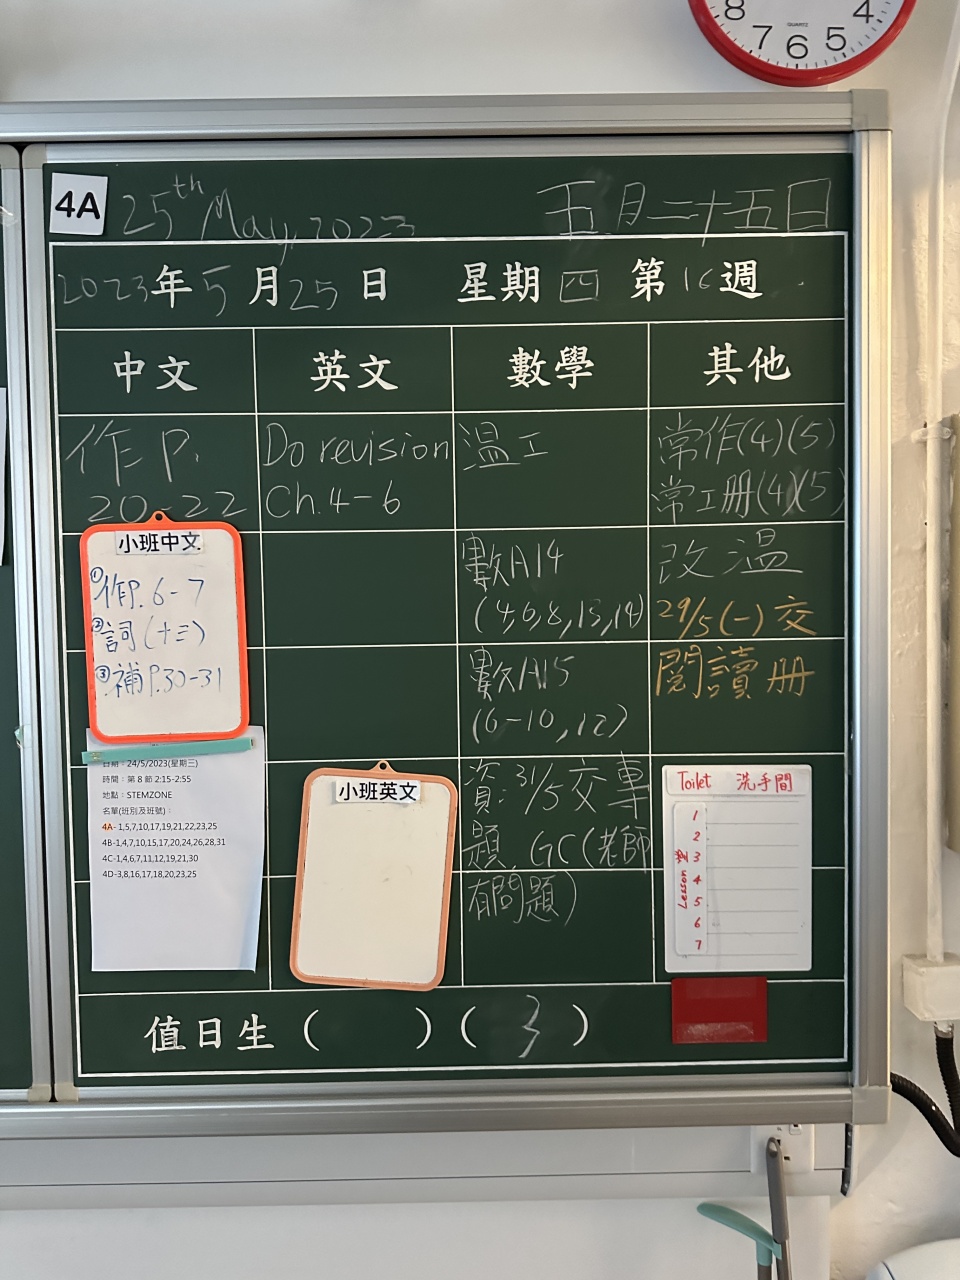 8 7 6 5 4
QUARTZ
4A
25th May, 2023
五月二十五日
2023年5月25日 星期四 第16週
中文 英文 數學 其他
作P.
20-22
Do revision
Ch.4-6
溫工
常作(4)(5)
常工册(4)(5)
小班中文
①作P.6-7
②詞(十三)
③補P.30-31
數A14
(4,6,8,13,14)
改溫
29/5(一)交
閱讀册
數A15
(6-10,12)
日期：24/5/2023(星期三)
時間：第 8 節 2:15-2:55
地點：STEMZONE
名單(班別及班號)：
4A- 1,5,7,10,17,19,21,22,23,25
4B-1,4,7,10,15,17,20,24,26,28,31
4C-1,4,6,7,11,12,19,21,30
4D-3,8,16,17,18,20,23,25
小班英文
資:31/5交專
題 GC(老師
有問題)
Toilet 洗手間
Lesson 堂
1
2
3
4
5
6
7
值日生（ ）（ 3 ）